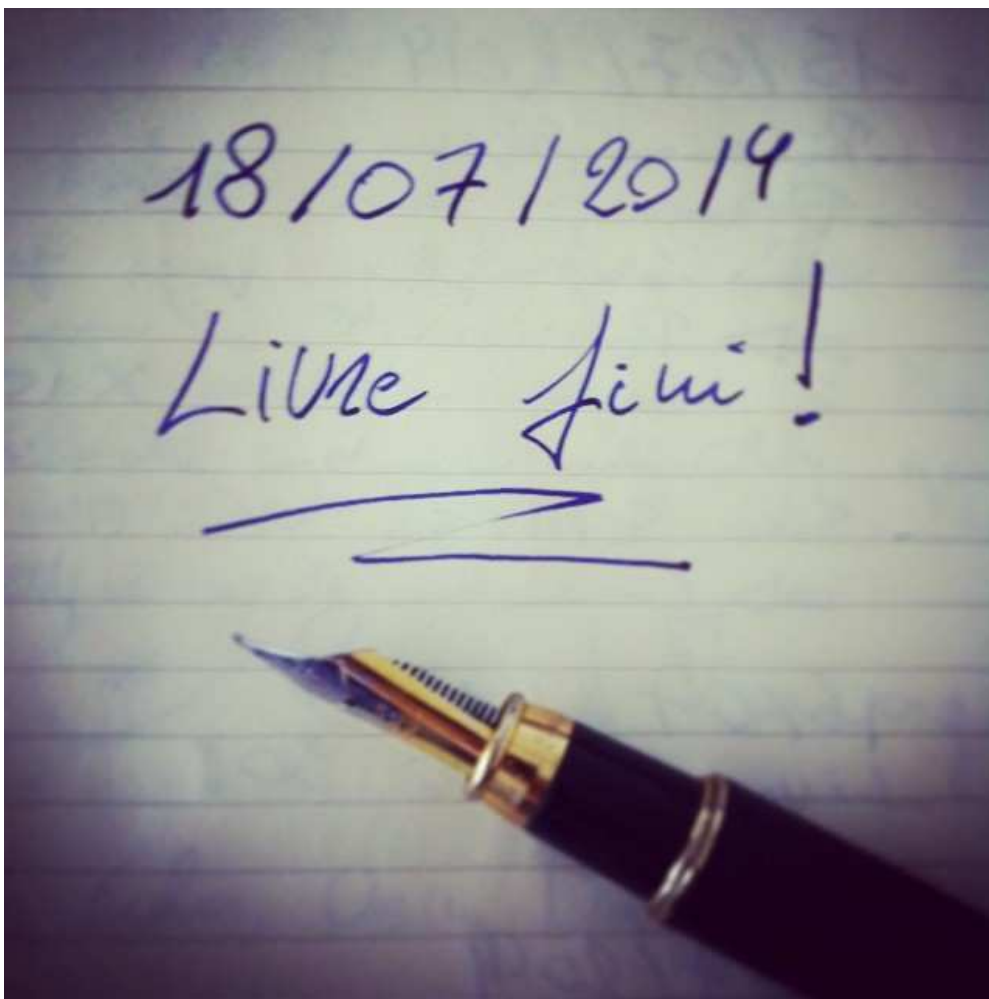 18/07/2014
Livre fini!